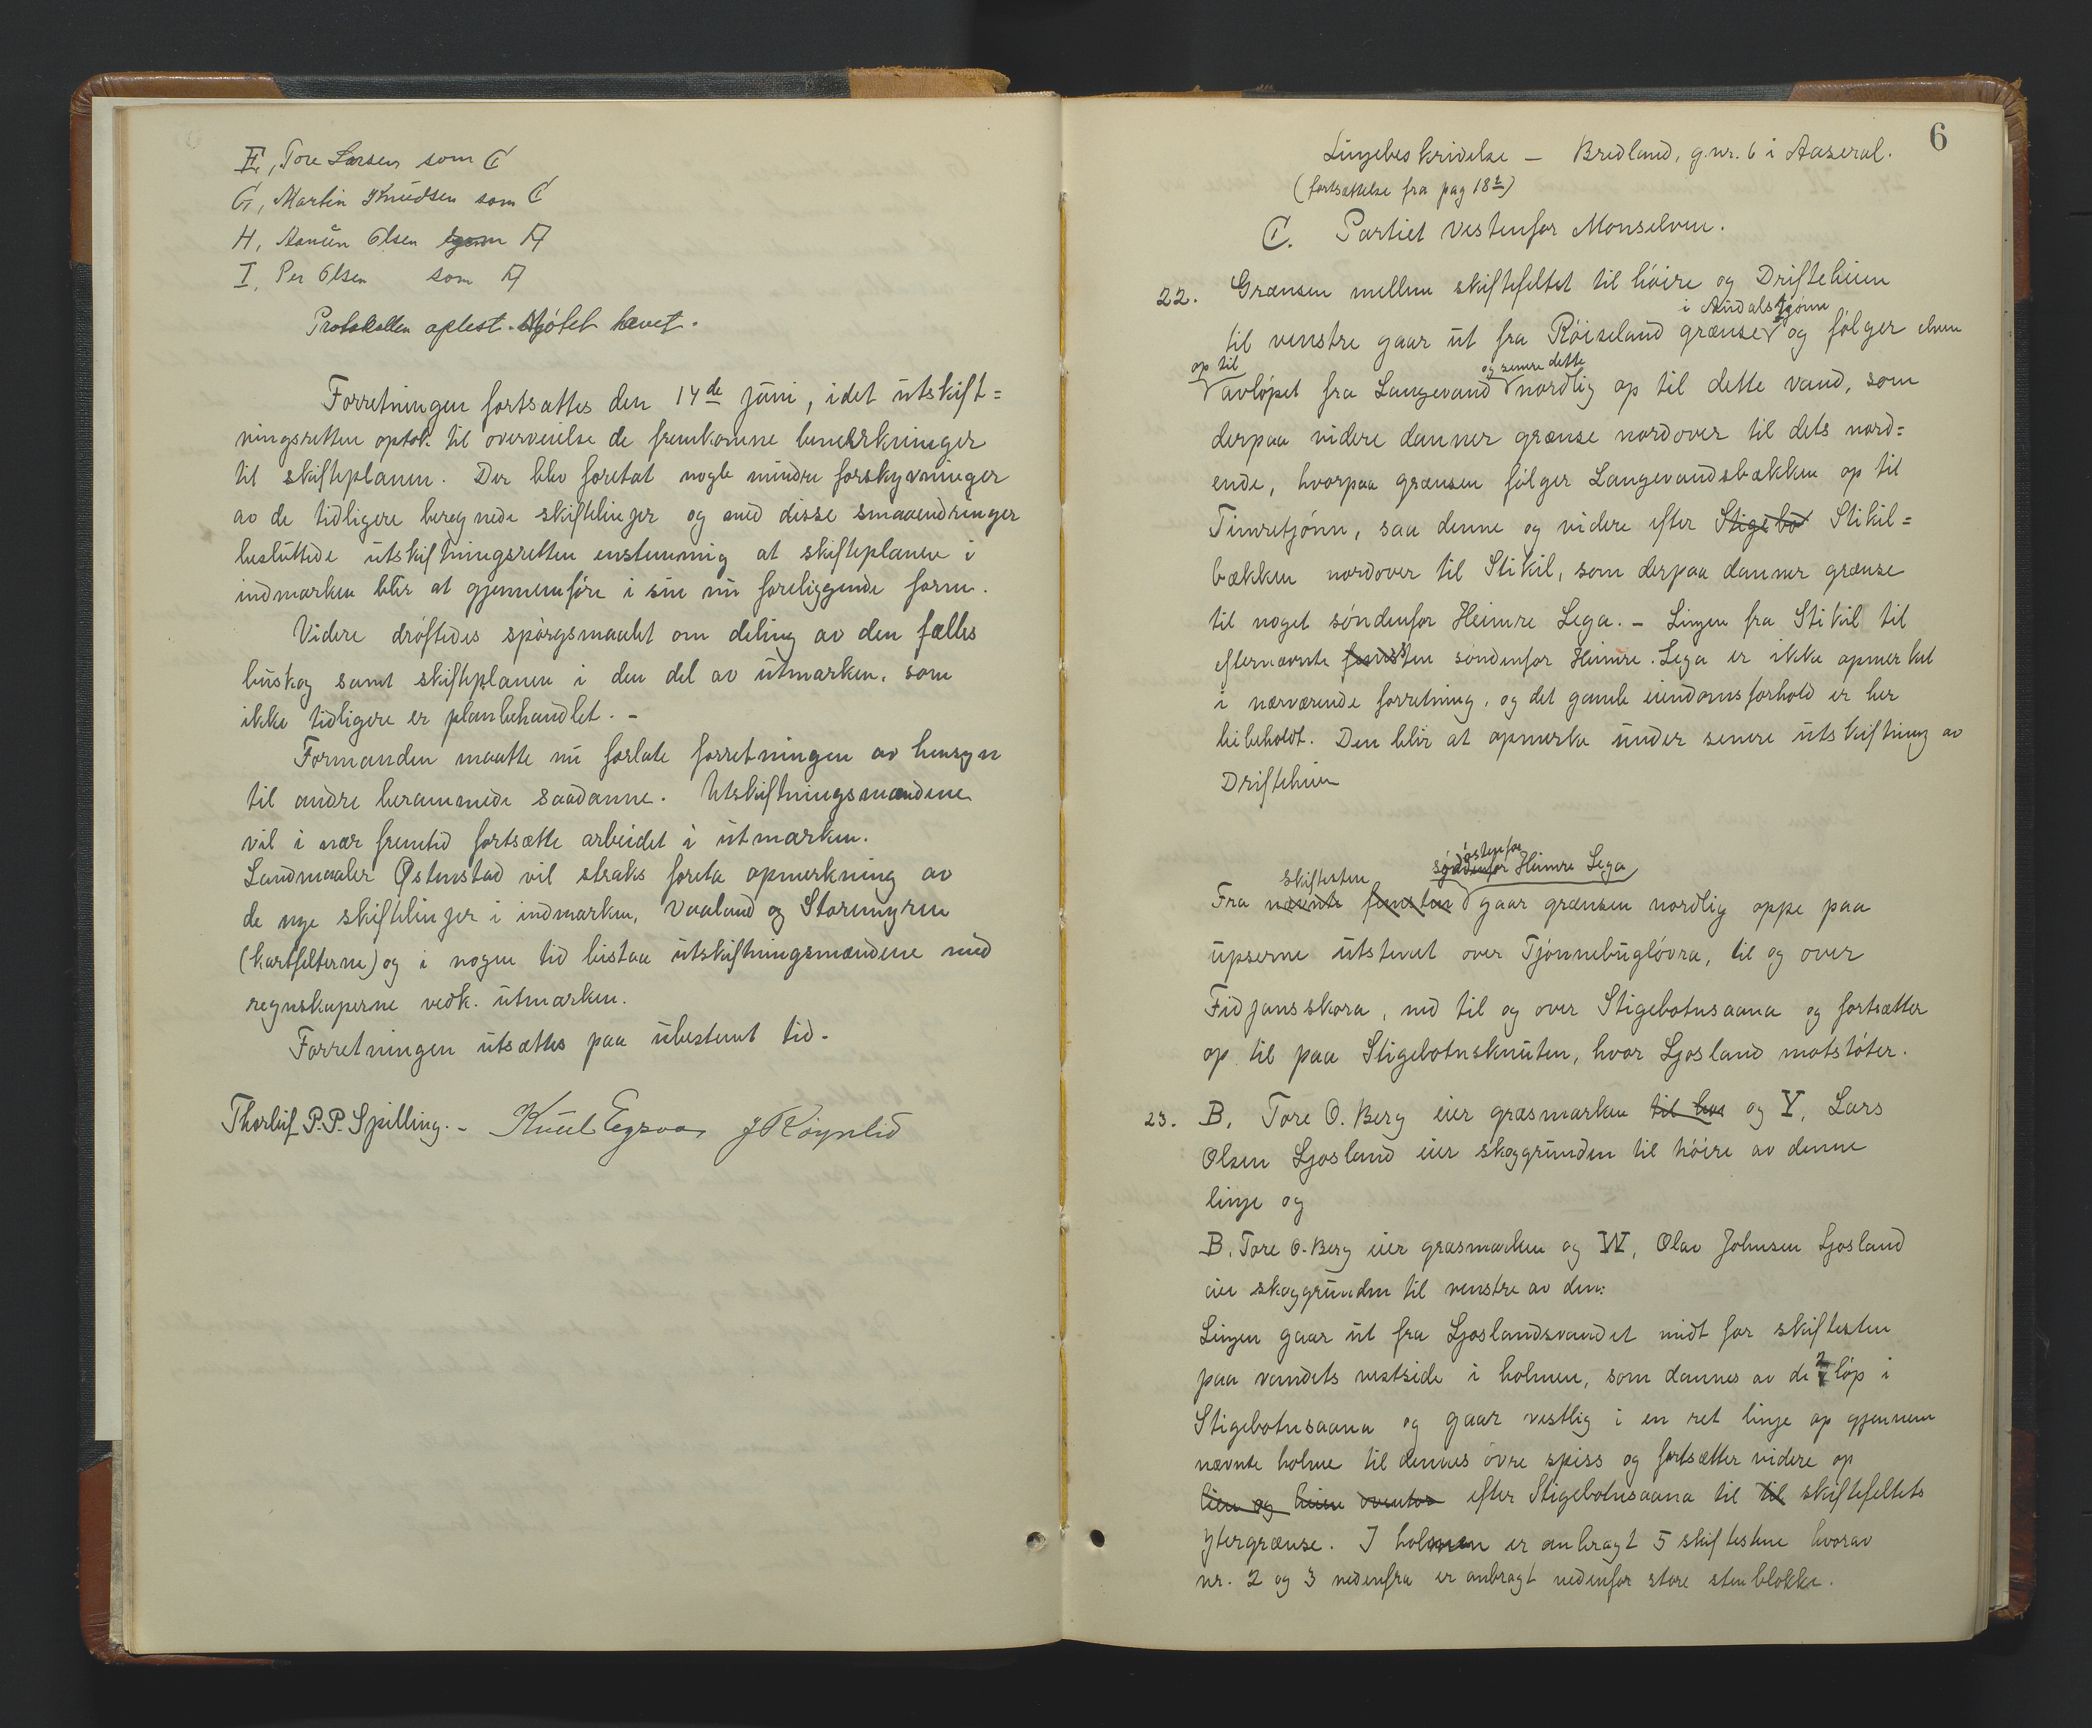 E, Tore Larsen som C
G, Martin Knudsen som C
H, Aanen Olsen som A
I, Per Olsen som A
Protokollen oplest. Møtet hævet.
Forretningen fortsattes den 14de juni, idet utskift=
ningsretten optok til overveielse de fremkomne bemerkninger
til skifteplanen. Der blev foretat nogle mindre forskyvninger
av de tidligere beregnede skiftelinjer og med disse smaaendringer
besluttede utskiftningsretten enstemmig at skifteplanen i
indmarken blir at gjennemføre i sin nu foreliggende form.
Videre drøftedes spørgsmaalet om deling av den fælles
buskog samt skifteplanen i den del av utmarken, som
ikke tidligere er planbehandlet. -
Formanden maatte nu forlate forretningen av hensyn
til andre berammede saadanne. Utskiftningsmændene
vil i nær fremtid fortsætte arbeidet i utmarken.
Landmaaler Østenstad vil straks foreta opmerkning av
de nye skiftelinjer i indmarken, Vaaland og Storemyren
(kartfelterne) og i nogen tid bistaa utskiftningsmændene med
regnskaperne vedk. utmarken.
Forretningen utsættes paa ubestemt tid.
Thorleif P.P. Spilling. - Knut Egsaa J Røynlid
6
Linjebeskrivelse - Bredland, g.nr. 6 i Aaseral.
(fortsættelse fra pag 18)
C. Partiet vestenfor Monselven.
22. Grænsen mellem skiftefeltet til høire og Drifteheien
i Audalstjønn
til venstre gaar ut fra Røiseland grænse og følger elven
op til og senere dette
avløpet fra Langevand nordlig op til dette vand, som
derpaa videre danner grænse nordover til dets nord=
ende, hvorpaa grænsen følger Langevandsbækken op til
Timretjønn, saa denne og videre efter Stigebo Stikil=
bækken nordover til Stikil, som derpaa danner grænse
til noget søndenfor Heimre Lega. - Linjen fra Stikil til
efternævnte søndenfor Heimre Lega er ikke opmerket
i nærværende forretning, og det gamle eiendomsforhold er her
bibeholdt. Den blir at opmerke under senere utskiftning av
Drifteheien
østenfor
skiftesten søndenfor Heimre Lega
Fra nævnte gaar grænsen nordlig oppe paa
upserne utstenet over Tjønnebugløvra, til og over
Fidjansskora, ned til og over Stigebotnsaana og fortsætter
op til paa Stigebotnsknuten, hvor Ljosland motstøter.
23. B. Tore O. Berg eier græsmarken til hos og Y, Lars
Olsen Ljosland eier skoggrunden til høire av denne
linje og
B. Tore O. Berg eier græsmarken og W, Olav Johnsen Ljosland
eier skoggrunden til venstre av den:
Linjen gaar ut fra Ljoslandsvandet midt for skiftesten
paa vandets vestside i holmen, som dannes av de 2 løp i
Stigebotnsaana og gaar vestlig i en ret linje op gjennem
nævnte holme til dennes øvre spiss og fortsætter videre op
lien og heien ovenfor efter Stigebotnsaana til til skiftefeltets
ytergrænse. I holmen er anbragt 5 skiftestene hvorav
nr. 2 og 3 nedenfra er anbragt nedenfor store stenblokke.